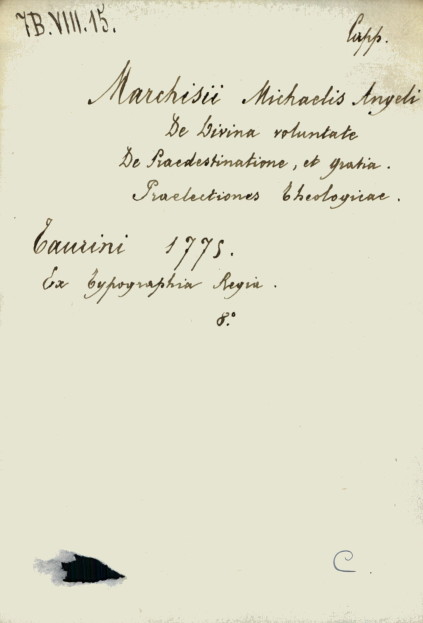 7B.VIII.15.
Capp.
Marchisii Michaelis Angeli
De Divina voluntate
De Praedestinatione, et gratia.
Praelectiones theologicae.
Taurini 1775.
Ex typographia Regia.
8.°
C.